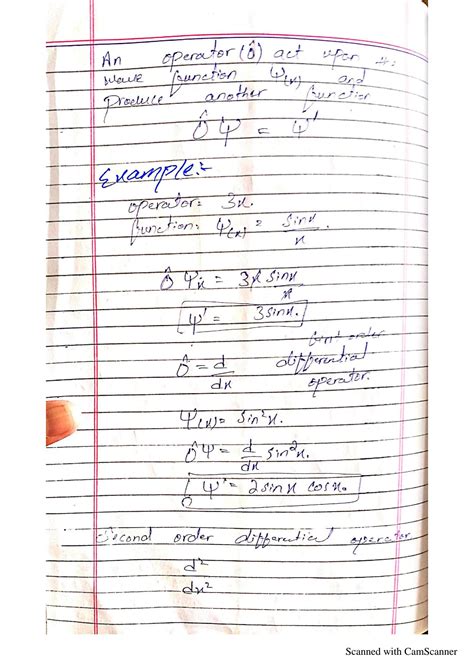 An operator (Ô) act upon
wave function Ψ(x) and
produce another function
Ô Ψ = Ψ'
Example:-
operator: 3x.
function: Ψ(x) = sinx/x.
Ô Ψx = 3x sinx/x
Ψ' = 3sinx.
Ô = d/dx differential
operator.
Ψ(x) = Sin²x.
ÔΨ = d/dx Sin²x.
Ψ' = 2sinx cosx.
Second order differential operator
d²/dx²
Scanned with CamScanner